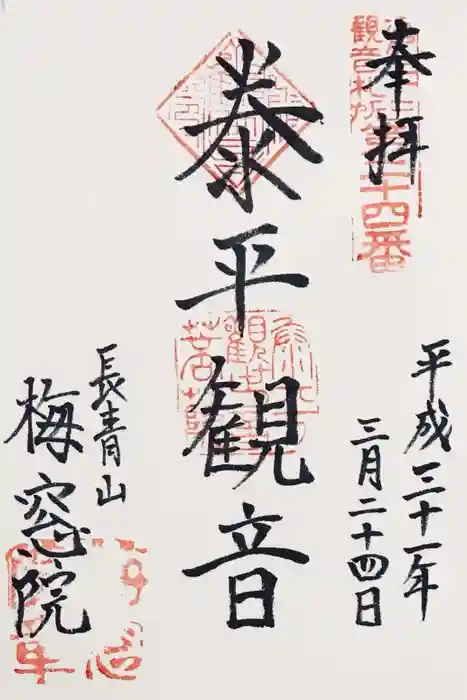 奉拝
観音札所第二十四番
平成三十一年
三月二十四日
泰平観音
長青山
梅窓院